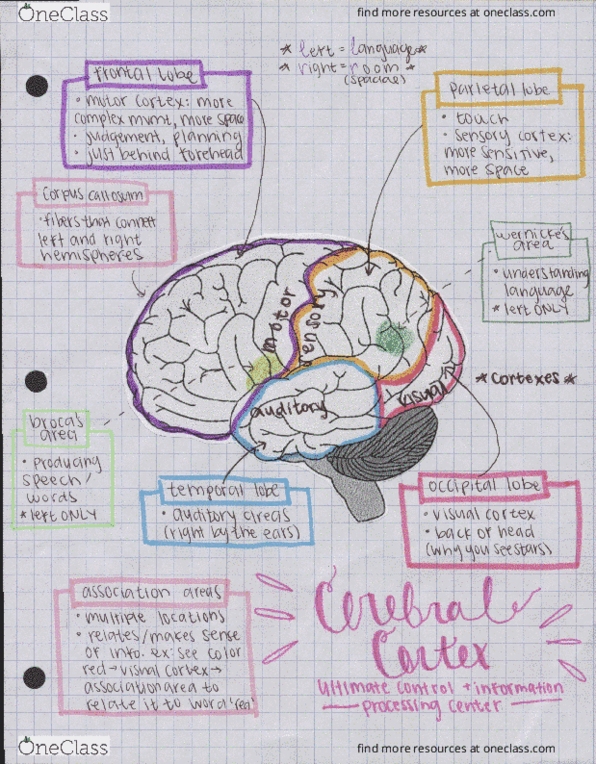 OneClass
find more resources at oneclass.com
* left = language *
* right = room *
(spacial)
frontal lobe
• motor cortex: more
complex mvmt, more space
• judgement, planning
• just behind forehead
parietal lobe
• touch
• sensory cortex:
more sensitive,
more space
corpus callosum
• fibers that connect
left and right
hemispheres
wernicke's
area
• understanding
language
* left ONLY
motor
sensory
auditory
visual
* cortexes *
broca's
area
• producing
speech/
words
* left ONLY
temporal lobe
• auditory areas
(right by the ears)
occipital lobe
• visual cortex
• back of head
(why you see stars)
association areas
• multiple locations
• relates/makes sense
of info. ex: see color
red → visual cortex →
association area to
relate it to word 'red'
Cerebral
Cortex
ultimate control + information
processing center
OneClass
find more resources at oneclass.com